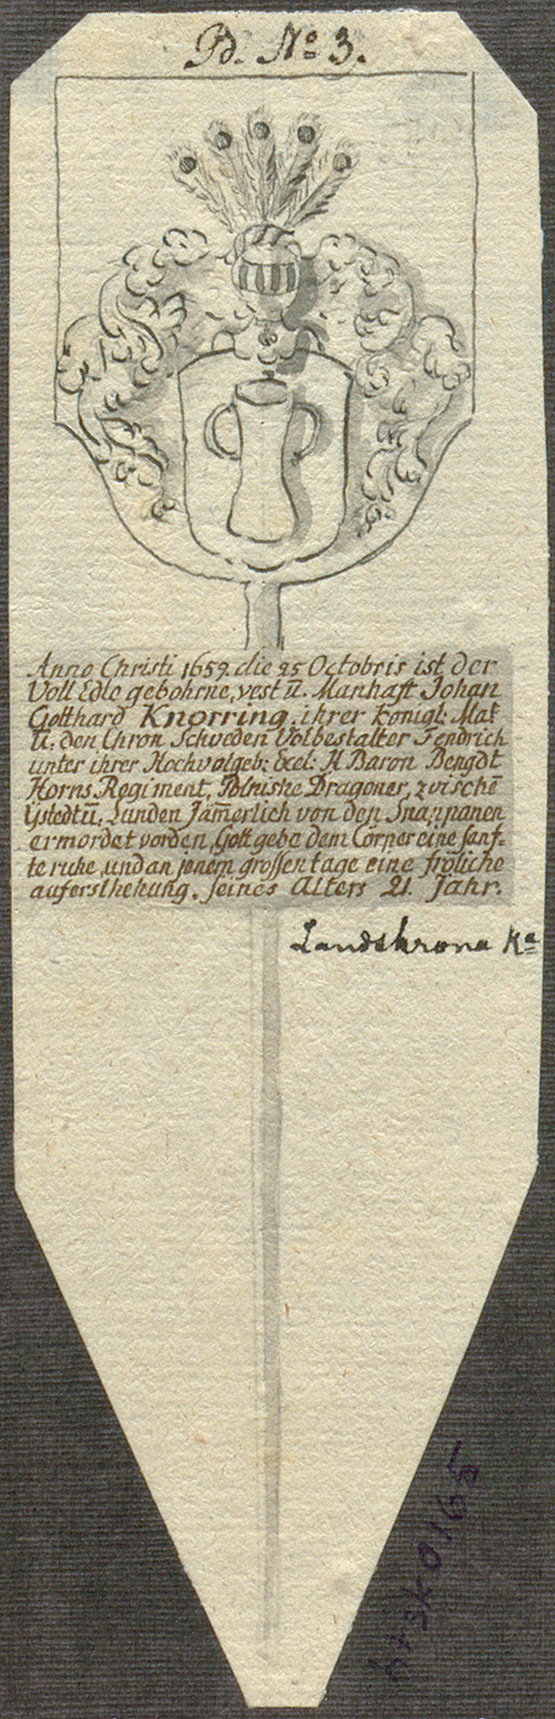 B. No 3.
Anno Christi 1659 die 25 Octobris ist der
Voll Edle gebohrne, vest ū. Manhaft Johan
Gotthard Knorring, ihrer königl: Maÿ
ū: den Chron Schveden Volbestalter Fendrich
unter ihrer Hochvolgeb: Excl: H Baron Bengdt
Horns Regiment, Polniske Dragoner, zvischē
Ÿstedt ū: Lunden Jam̄erlich von den Snappanen
ermordet vorden, Gott gebe dem Cörper eine sanf=
te ruhe, und an jenem grossen tage eine fröliche
auferslhehung. seines Alters 21. Jahr.
Landskrona Ka